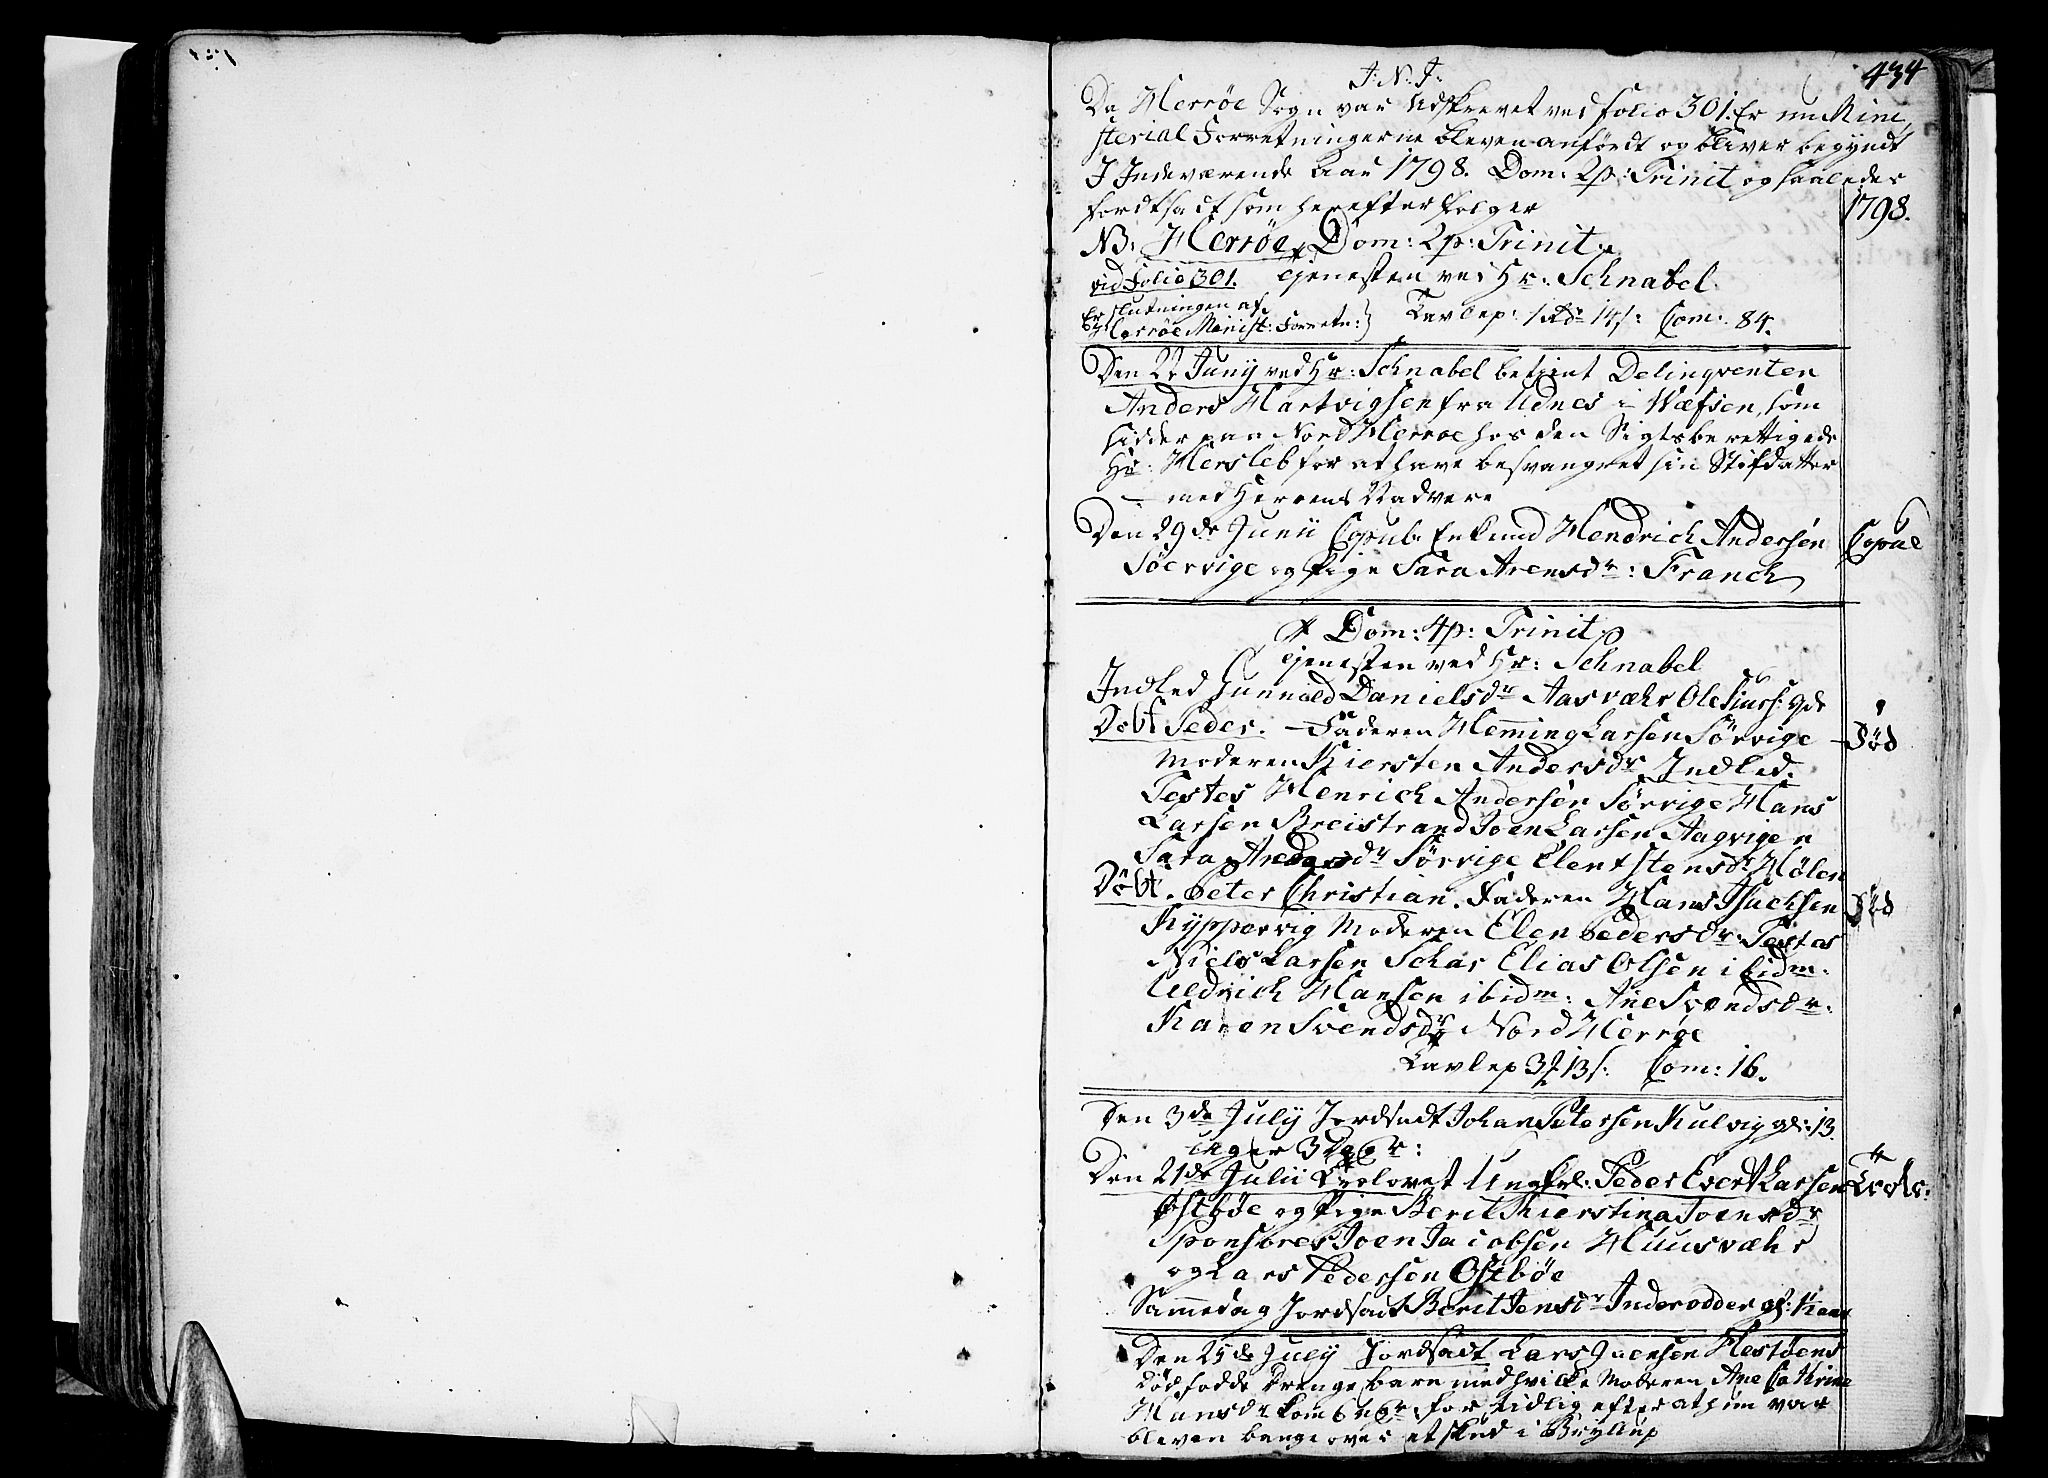 434
J: N: J:
Da Herröe Sogn var Udskrevet ved folio 301. Er nu Mini
sterial Forretningerne bleven anfördt og bliver begyndt
J Indeværende Aar 1798. Dom: 2 p: Trinit og saaledes
fordtsadt som herefter følger
1798.
NB: Herröe, Dom: 2 p: Trinit
vid Folio 301. Tjenesten ved Hr: Schnabel.
Er slutningen af
Herröe Minist: Forretn:
Tavlep: 1 14 s: Com: 84.
Den 22 Junÿ ved Hr: Schnabel betjent Delinqventen
Anders Hartvigsen fra Udnes i Wæfsen, som
sidder paa Nord Herröe hos den Sigtsberettigede
Hr: Hersleb for at have besvangret sin Stifdatter
med Herrens Nadvere
Den 29de Junii Copul: Enkmand Hendrich Andersön
Söervige og Pige Sara Arensdr: Franch
Copul
Dom: 4 p: Trinit
Tjenesten ved Hr: Schnabel
Indled Gunnild Danielsdr Aasvæhr Ole
Döbt Peder. Faderen Heming Larsen Sörvige
Föd
Moderen Kiersten Andersdr Indled.
Testes Henrich Andersön Sörvige Hans
Larsen Breistrand Joen Larsen Aagvigen
Sara Sörvige Elen Stensdr Hölen
Döbt. Peter Christian. Faderen Hans Isachsen
Föd
Kypparvig Moderen Elen Pedersdr: Testes
Niels Larsen Schar Elias Olsen ibidm.
Uldrich Hansen ibidm: Ane Svendsdr:
Karen Svendsdr Nord Herröe
Tavlep 3 13 s: Com: 16.
Den 3de Julÿ Jordsadt Johan Petersen Kulvig gl: 13
uger 3 Dage
Den 21de Julii Trolovet Ungkrl: Peder Evert Larsen
Östböe og Pige Berit Kierstina Joensdr
Sponsores Joen Jacobsen Huusvæhr
og Lars Pedersen Östböe
Samme dag Jordsadt Berit Jensdr Inderodder gl:
Den 25de Julÿ Jordsadt Lars Jaensen Hestöens
Dödfödde Drengebarn med hvilke Moderen Ane Cathrine
Hansdr kom 6 for tidlig efter at hun var
bleven bange over et skud i Brÿllup